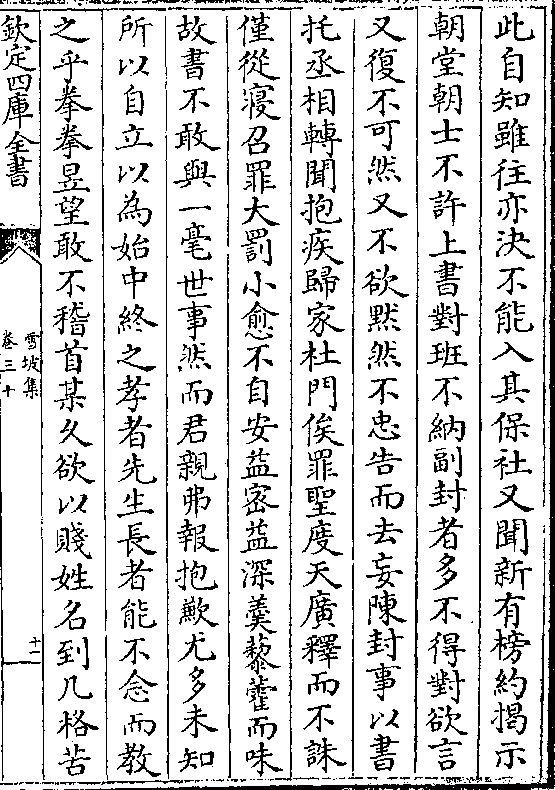 此自知雖往亦決不能入其保社又聞新有榜約揭示
朝堂朝士不許上書對班不納副封者多不得對欲言
又復不可然又不欲黙然不忠告而去妄陳封事以書
托丞相轉聞抱疾歸家杜門俟罪聖度天廣釋而不誅
僅從寢召罪大罰小愈不自安益密益深羹藜藿而味
故書不敢與一毫世事然而君親弗報抱歉尤多未知
所以自立以為始中終之孝者先生長者能不念而教
之乎拳拳昱望敢不稽首某久欲以賤姓名到几格苦
欽定四庫全書
雪坡集
卷三十
十一